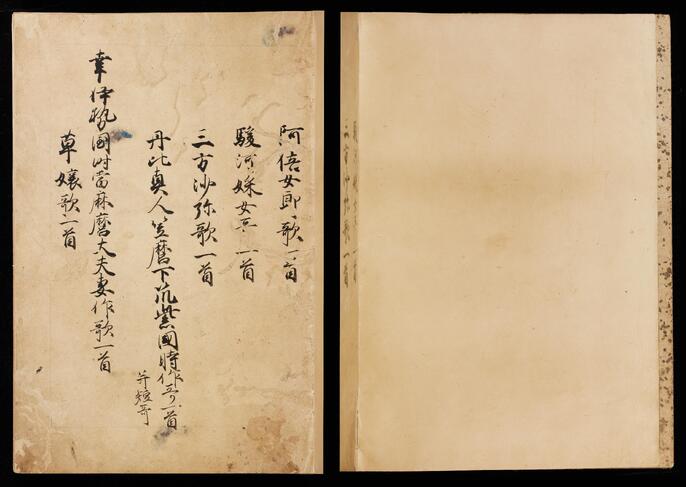 阿倍女郎歌一首
駿河婇女哥一首
三方沙弥歌一首
丹比真人笠麿下筑紫國時作哥一首
并短哥
幸伊勢國時當麻麿大夫妻作歌一首
草嬢歌一首